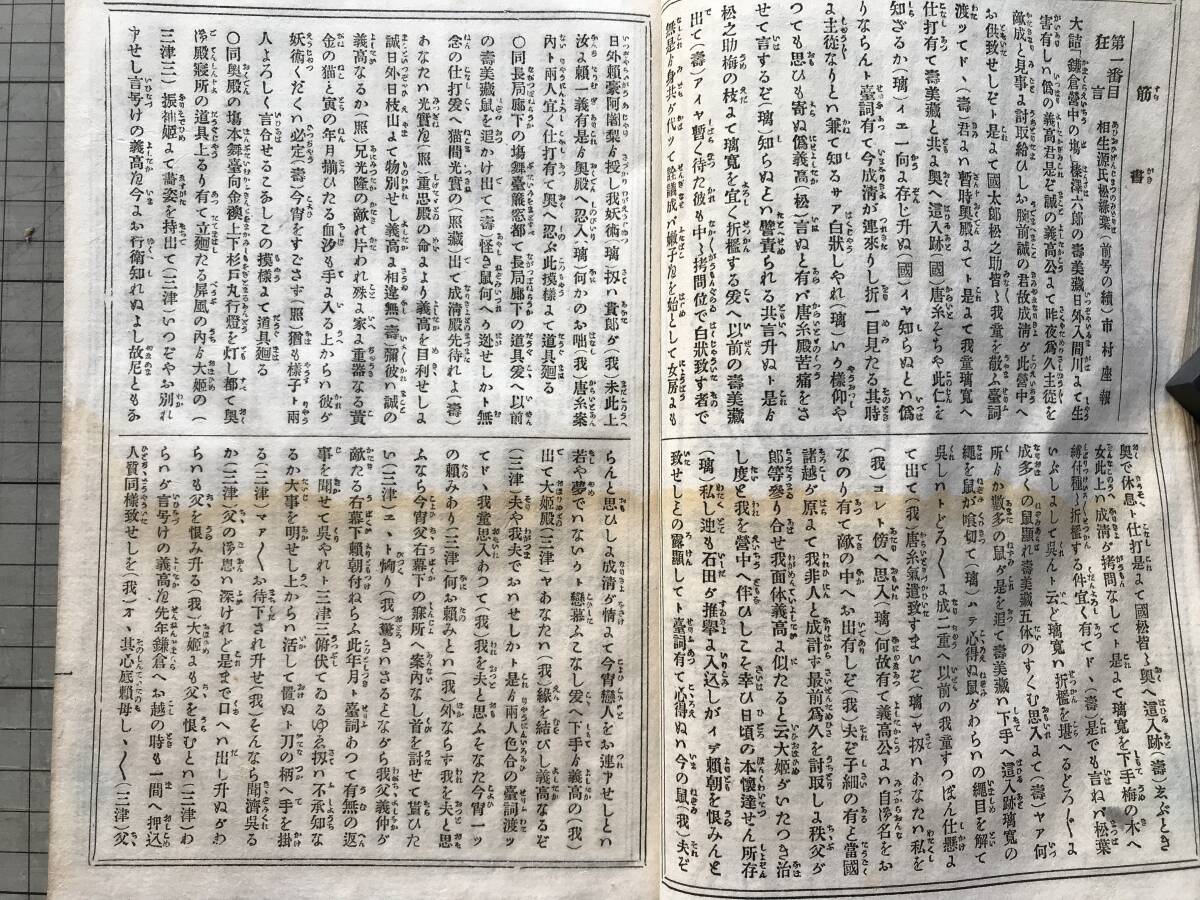 筋書
第一番目
狂言
相生源氏松緑葉(前号の續)市村座報
大詰「鎌倉營中の塲」榛澤六郎の壽美藏日外入間川よて生
害有しハ偽の義高君是ぞ誠の義高公よて昨夜為久主従を
敵成と見事よ討取給ひしお腕前誠の君故成清ダ此營中へ
お供致せしぞト是よて國太郎松之助皆〳〵我童を敬ふ臺詞
渡ツてド(壽)君よハ暫時奥殿よてト是よて我童璃寛へ
仕打有て壽美藏と共よ奥へ這入跡(國)唐糸そちや此仁を
知ざるか(璃)イエ一向よ存じ升ぬ(國)イヤ知らぬとハ偽
りならんト臺詞有て今成清が連來りし折一目見たる其時
よ主従なりとハ兼て知るサア白状しやれ(璃)いゝ様仰や
つても思ひも寄ぬ偽義高(松)言ぬと有バ唐糸殿苦痛をさ
せて言するぞ(璃)知らぬとハ譬責られる共言升ぬト是より
松之助梅の枝よて璃寛を宜く折檻する爰へ以前の壽美藏
出て(壽)アイヤ暫く待たれ彼も中〳〵拷問位で白状致す者で
無是より身共ダ代ツて詮議成バ嫩子殿を始として女房よも
奥で休息ト仕打是よて國松皆〳〵奥へ這入跡(壽)ゑぶとき
女此上ハ成清ダ拷問なしてト是よて璃寛を下手梅の木へ
縛付種〳〵折檻する件宜く有てド、(壽)是でも言ねバ松葉
いぶしよして呉んト云ど璃寛ハ折檻を堪へるどろ〳〵よ
成多くの鼠顕れ壽美藏五体のすくむ思入よて(壽)ヤア何
所よか數多の鼠ダト是を追て壽美藏ハ下手へ這入跡璃寛の
繩を鼠が喰切て(璃)ハテ心得ぬ鼠ダわらハの繩目を解て
呉しハトどろ〳〵よ成二重へ以前の我童すつぽん仕懸よ
て出て(我)唐糸氣遣致すまいぞ(璃)ヤ扨ハあなたハ私を
(我)コレト傍へ思入(璃)何故有て義高公よハ自御名をお
なのり有て敵の中へお出有しぞ(我)夫ぞ子細の有と當國
諸越ダ原よて我非人と成計す最前為久を討取しよ秩父ダ
郎等參り合せ我面体義高よ似たると云大姫ダいたつき治
し度と我を營中へ伴ひしこそ幸ひ日頃の本懐達せん所存
(璃)私し迚も石田ダ推擧よ入込しがイデ頼朝を恨みんと
致せしとの露顕してト臺詞有て心得ぬハ今の鼠(我)夫ぞ
日外頼豪阿闍梨より授し我妖術(璃)扨ハ貴郎ダ(我)未此上
汝よ頼ハ一義有是より奥殿へ忍入(璃)何かのお咄(我)唐糸案
内ト兩人宜く仕打有て奥へ忍ぶ此摸樣よて道具廻る
〇同長局廊下の塲舞臺簾窓都て長局廊下の道具爰へ以前
の壽美藏鼠を追かけ出て(壽)怪き鼠何へ迯せしかト無
念の仕打爰へ猫間光實の(照藏)出て成清殿先待れよ(壽)
あなたハ光實殿(照)重思殿の命より義高を目利せしよ
誠日外日枝山よて物別せし義高よ相違無(壽)彌彼ハ誠の
義高なるか(照)兄光隆の敵の片われ殊よ家よ重器なる黄
金の猫と寅の年月揃ひたる血汐も手よ入る上からハ彼ダ
妖術くだくハ必定(壽)今宵をすごさず(照)猶も樣子ト兩
人よろしく言合せるこなしこの摸樣よて道具廻る
〇同奥殿の塲本舞臺向金襖上下杉戸丸行燈を灯し都て奥
御殿寢所の道具上るり有て立廻たる屏風の内より大姫の(
三津三)振袖姫よて薦姿を持出て(三津)いつぞやお別れ
申せし言号けの義高殿今よお行衛知れぬよし故尼ともな
らんと思ひしよ成清ダ情よて今宵戀人をお連申せしとハ
若や夢でハないりト戀慕ふこなし爰へ下手より義高の(我)
出て大姫殿(三津)ヤあなたハ(我)縁を結びし義高なるぞ
(三津)夫や我夫でおハせしかト是より兩人色合の臺詞渡ッ
てド、我童思入あつて(我)我を夫と思ふそなた今宵一ッ
の頼みあり(三津)何お頼みとハ(我)外ならず我を夫と思
ふなら今宵父右幕下の寐所へ案内なし首を討せて貰ひた
い(三津)エ、ト恟り(我)驚きハさるとなダら我父義仲ダ
敵たる右幕下頼朝付ねらふ此年月ト臺詞あつて有無の返
事を聞せて呉やれト三津三俯伏てゐるゆゑ扨ハ不承知な
るか大事を明せし上からハ活して置ぬト刀の柄へ手を掛
る(三津)マア〳〵お待下され升せ(我)そんなら聞濟呉る
か(三津)父の御恩ハ深けれど是まで口へハ出し升ぬダわ
らハも父を恨み升る(我)大姫よも父を恨むとハ(三津)わ
らハダ言号けの義高殿先年鎌倉へお越の時も一間へ押込
人質同樣致せしを(我)オ、其心底頼母し〳〵(三津)父